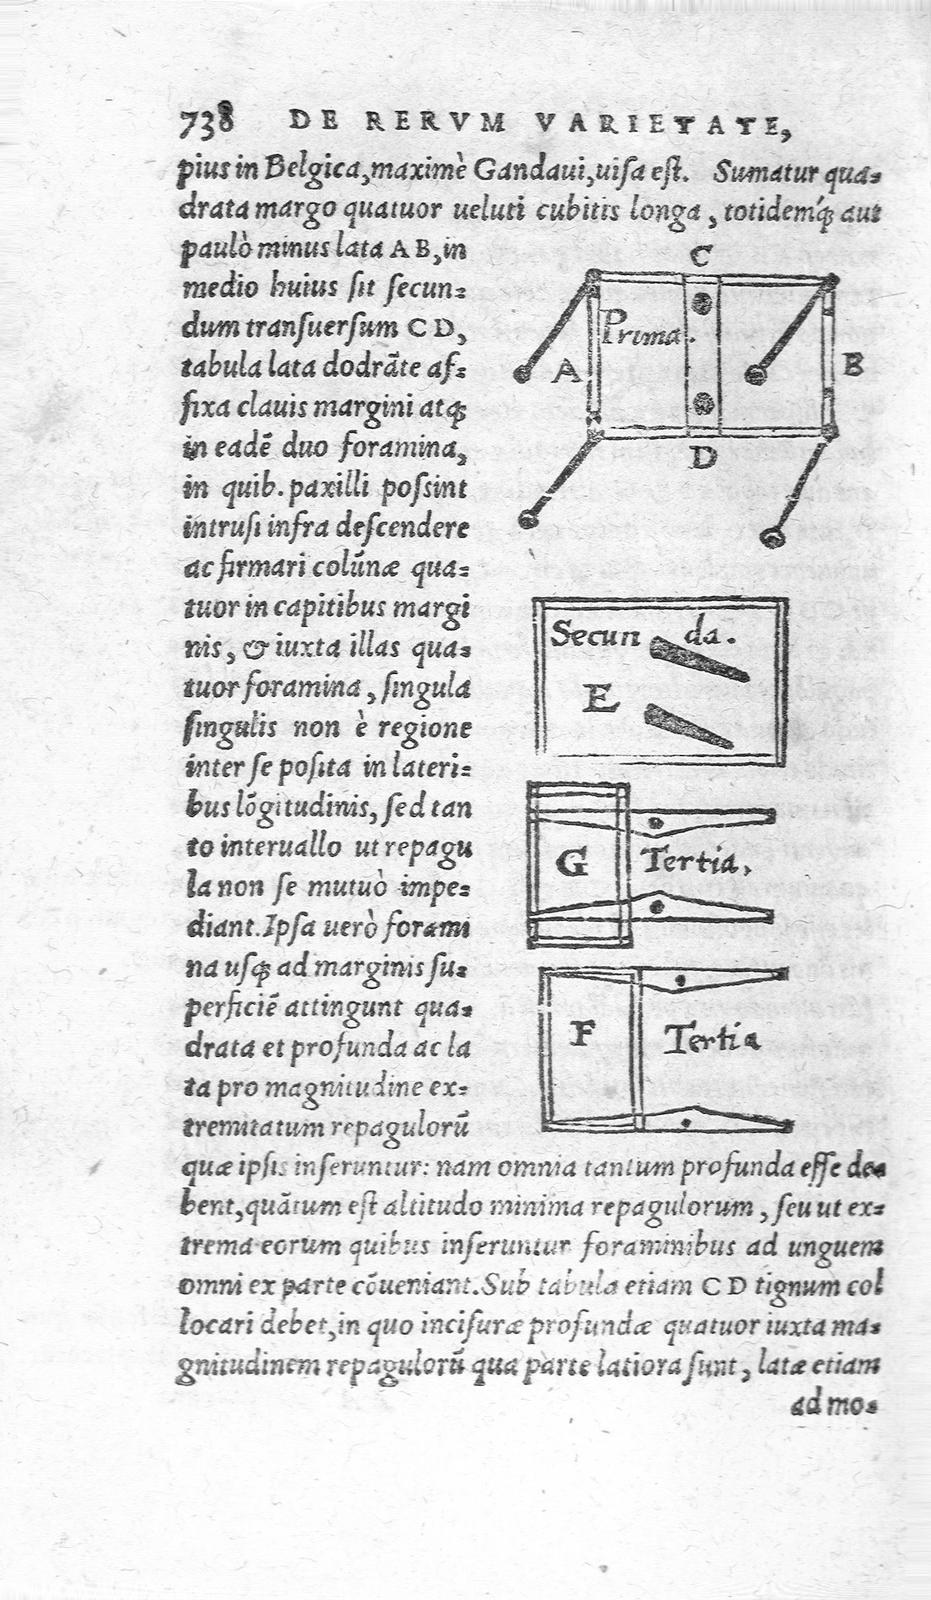 738 DE RERVM VARIETATE,
pius in Belgica, maximè Gandaui, uisa est. Sumatur qua-
drata margo quatuor ueluti cubitis longa, totidemq́; aut
paulò minus lata A B, in
medio huius sit secun-
dum transuersum C D,
tabula lata dodrāte af-
fixa clauis margini atq;
in eadē duo foramina,
in quib. paxilli possint
intrusi infra descendere
ac firmari colūnæ qua-
tuor in capitibus margi
nis, & iuxta illas qua-
tuor foramina, singula
singulis non è regione
inter se posita in lateri-
bus lōgitudinis, sed tan
to interuallo ut repagu
la non se mutuò impe-
diant. Ipsa uerò forami
na usq; ad marginis su-
perficiē attingunt qua-
drata et profunda ac la
ta pro magnitudine ex-
tremitatum repagulorū
quæ ipsis inseruntur: nam omnia tantum profunda esse de-
bent, quātum est altitudo minima repagulorum, seu ut ex-
trema eorum quibus inseruntur foraminibus ad unguem
omni ex parte cōueniant. Sub tabula etiam C D tignum col
locari debet, in quo incisuræ profundæ quatuor iuxta ma-
gnitudinem repagulorū qua parte latiora sunt, latæ etiam
ad mo-
C
Prima.
A
B
D
Secunda.
E
G
Tertia.
F
Tertia